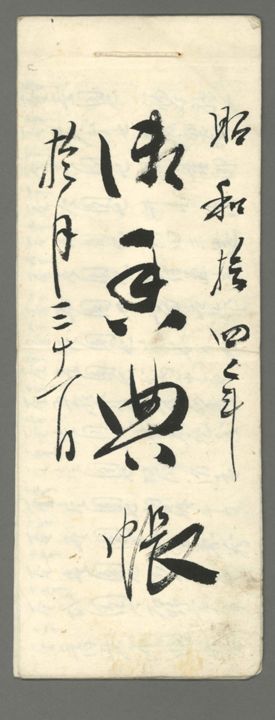 昭和拾四年
御香典帳
拾月三十一日